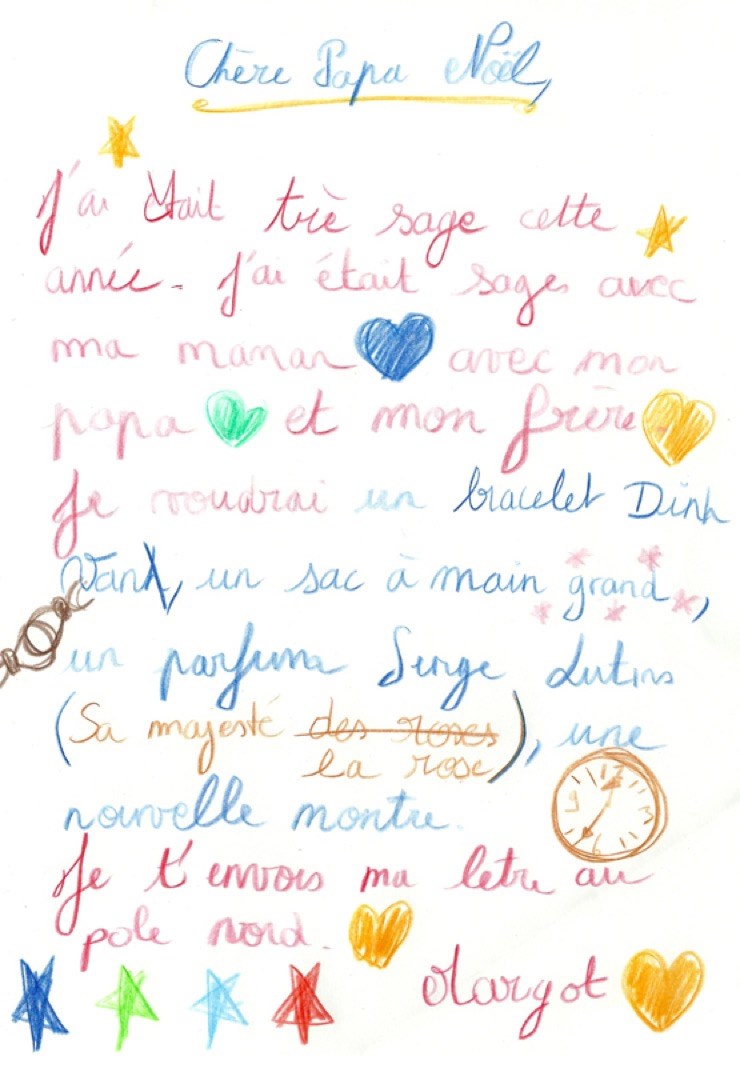 Chère Papa Noël,
J'ai était trè sage cette
année. J'ai était sages avec
ma maman avec mon
papa et mon frère.
Je voudrai un bracelet Dinh
Vanh, un sac à main grand,
un parfum Serge Lutins
(Sa majesté des roses), une
la rose
nouvelle montre.
9 12 3 6
Je t'envois ma letre au
pole nord.
Margot